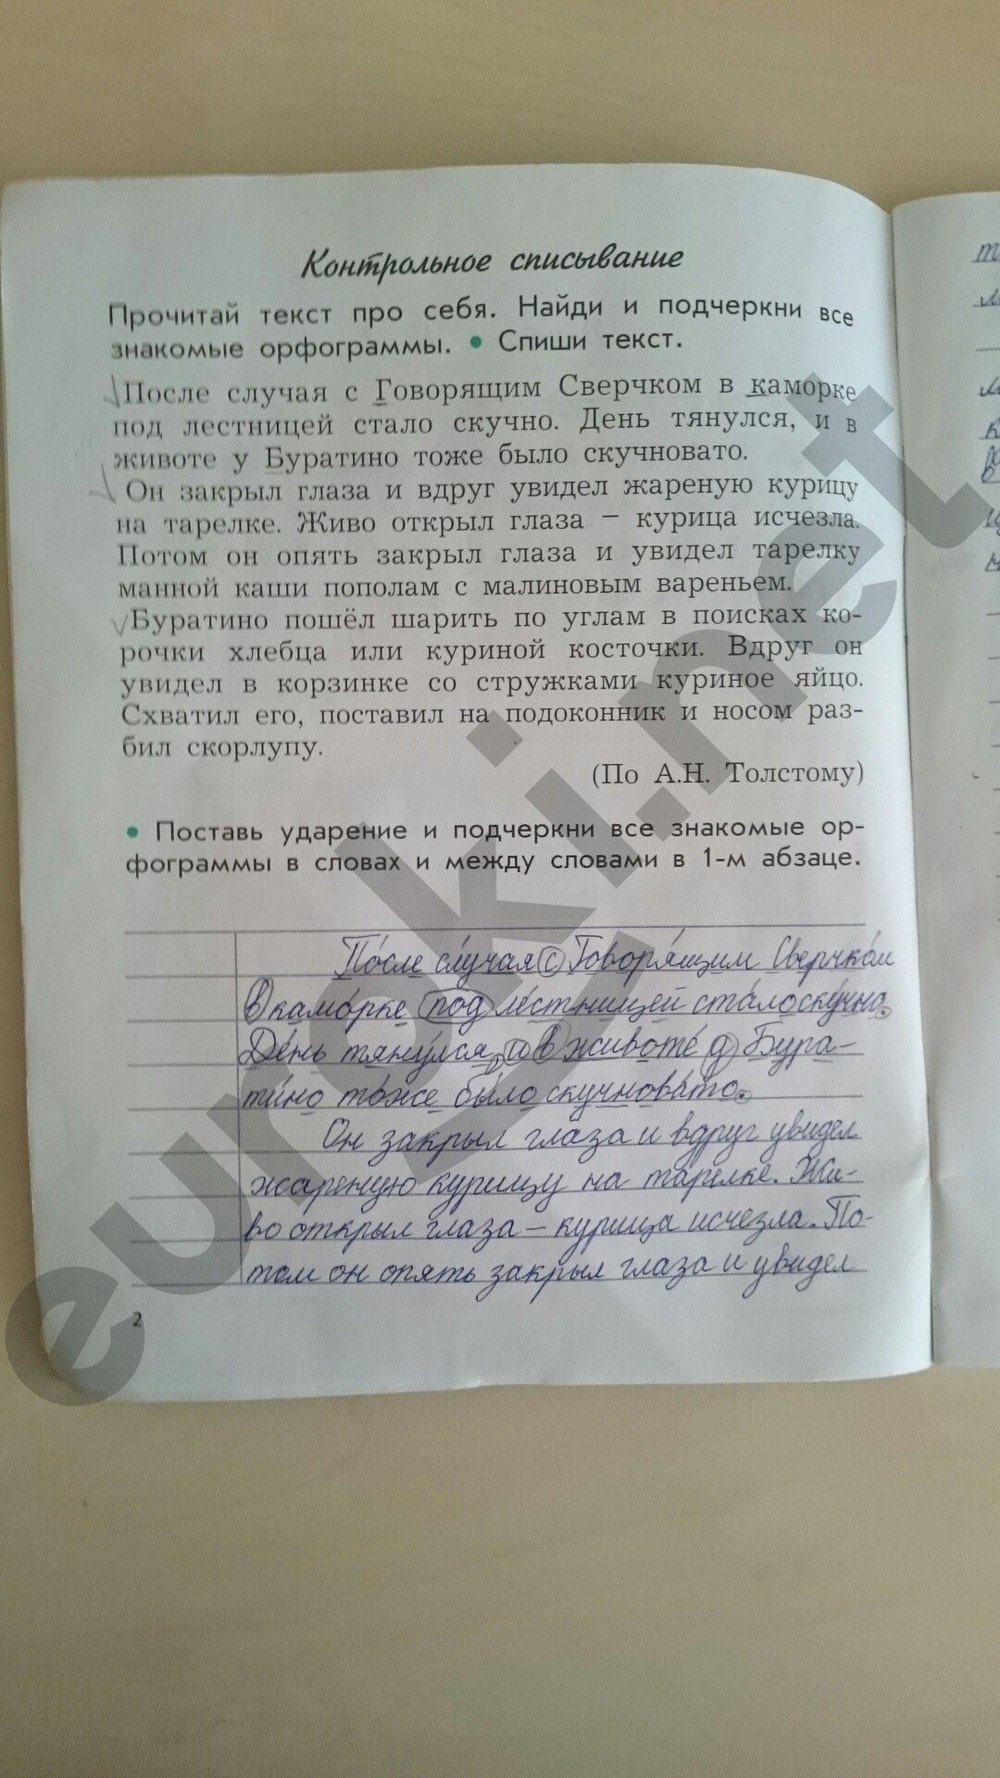 Контрольное списывание
Прочитай текст про себя. Найди и подчеркни все
знакомые орфограммы. • Спиши текст.
После случая с Говорящим Сверчком в каморке
под лестницей стало скучно. День тянулся, и в
животе у Буратино тоже было скучновато.
Он закрыл глаза и вдруг увидел жареную курицу
на тарелке. Живо открыл глаза – курица исчезла.
Потом он опять закрыл глаза и увидел тарелку
манной каши пополам с малиновым вареньем.
Буратино пошёл шарить по углам в поисках ко-
рочки хлебца или куриной косточки. Вдруг он
увидел в корзинке со стружками куриное яйцо.
Схватил его, поставил на подоконник и носом раз-
бил скорлупу.
(По А.Н. Толстому)
• Поставь ударение и подчеркни все знакомые ор-
фограммы в словах и между словами в 1-м абзаце.
После случая с Говорящим Сверчком
в каморке под лестницей стало скучно.
День тянулся, и в животе у Бура-
тино тоже было скучновато.
Он закрыл глаза и вдруг увидел
жареную курицу на тарелке. Жи-
во открыл глаза – курица исчезла. По-
том он опять закрыл глаза и увидел
2
euroki.net